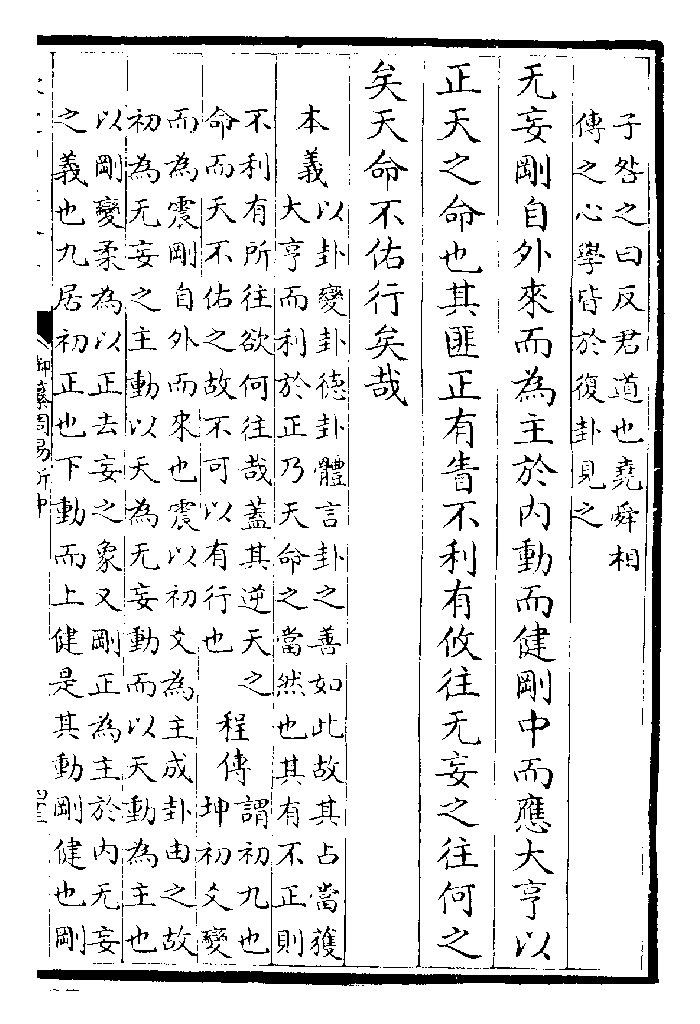 子咎之曰反君道也堯舜相
傳之心學皆於復卦見之
无妄剛自外來而為主於內動而健剛中而應大亨以
正天之命也其匪正有眚不利有攸往无妄之往何之
矣天命不佑行矣哉
本義
以卦變卦德卦體言卦之善如此故其占當獲
大亨而利於正乃天命之當然也其有不正則
不利有所往欲何往哉蓋其逆天之
命而天不佑之故不可以有行也
程傳
謂初九也
坤初爻變
而為震剛自外而來也震以初爻為主成卦由之故
初為无妄之主動以天為无妄動而以天動為主也
以剛變柔為以正去妄之象又剛正為主於內无妄
之義也九居初正也下動而上健是其動剛健也剛
御纂周易折中